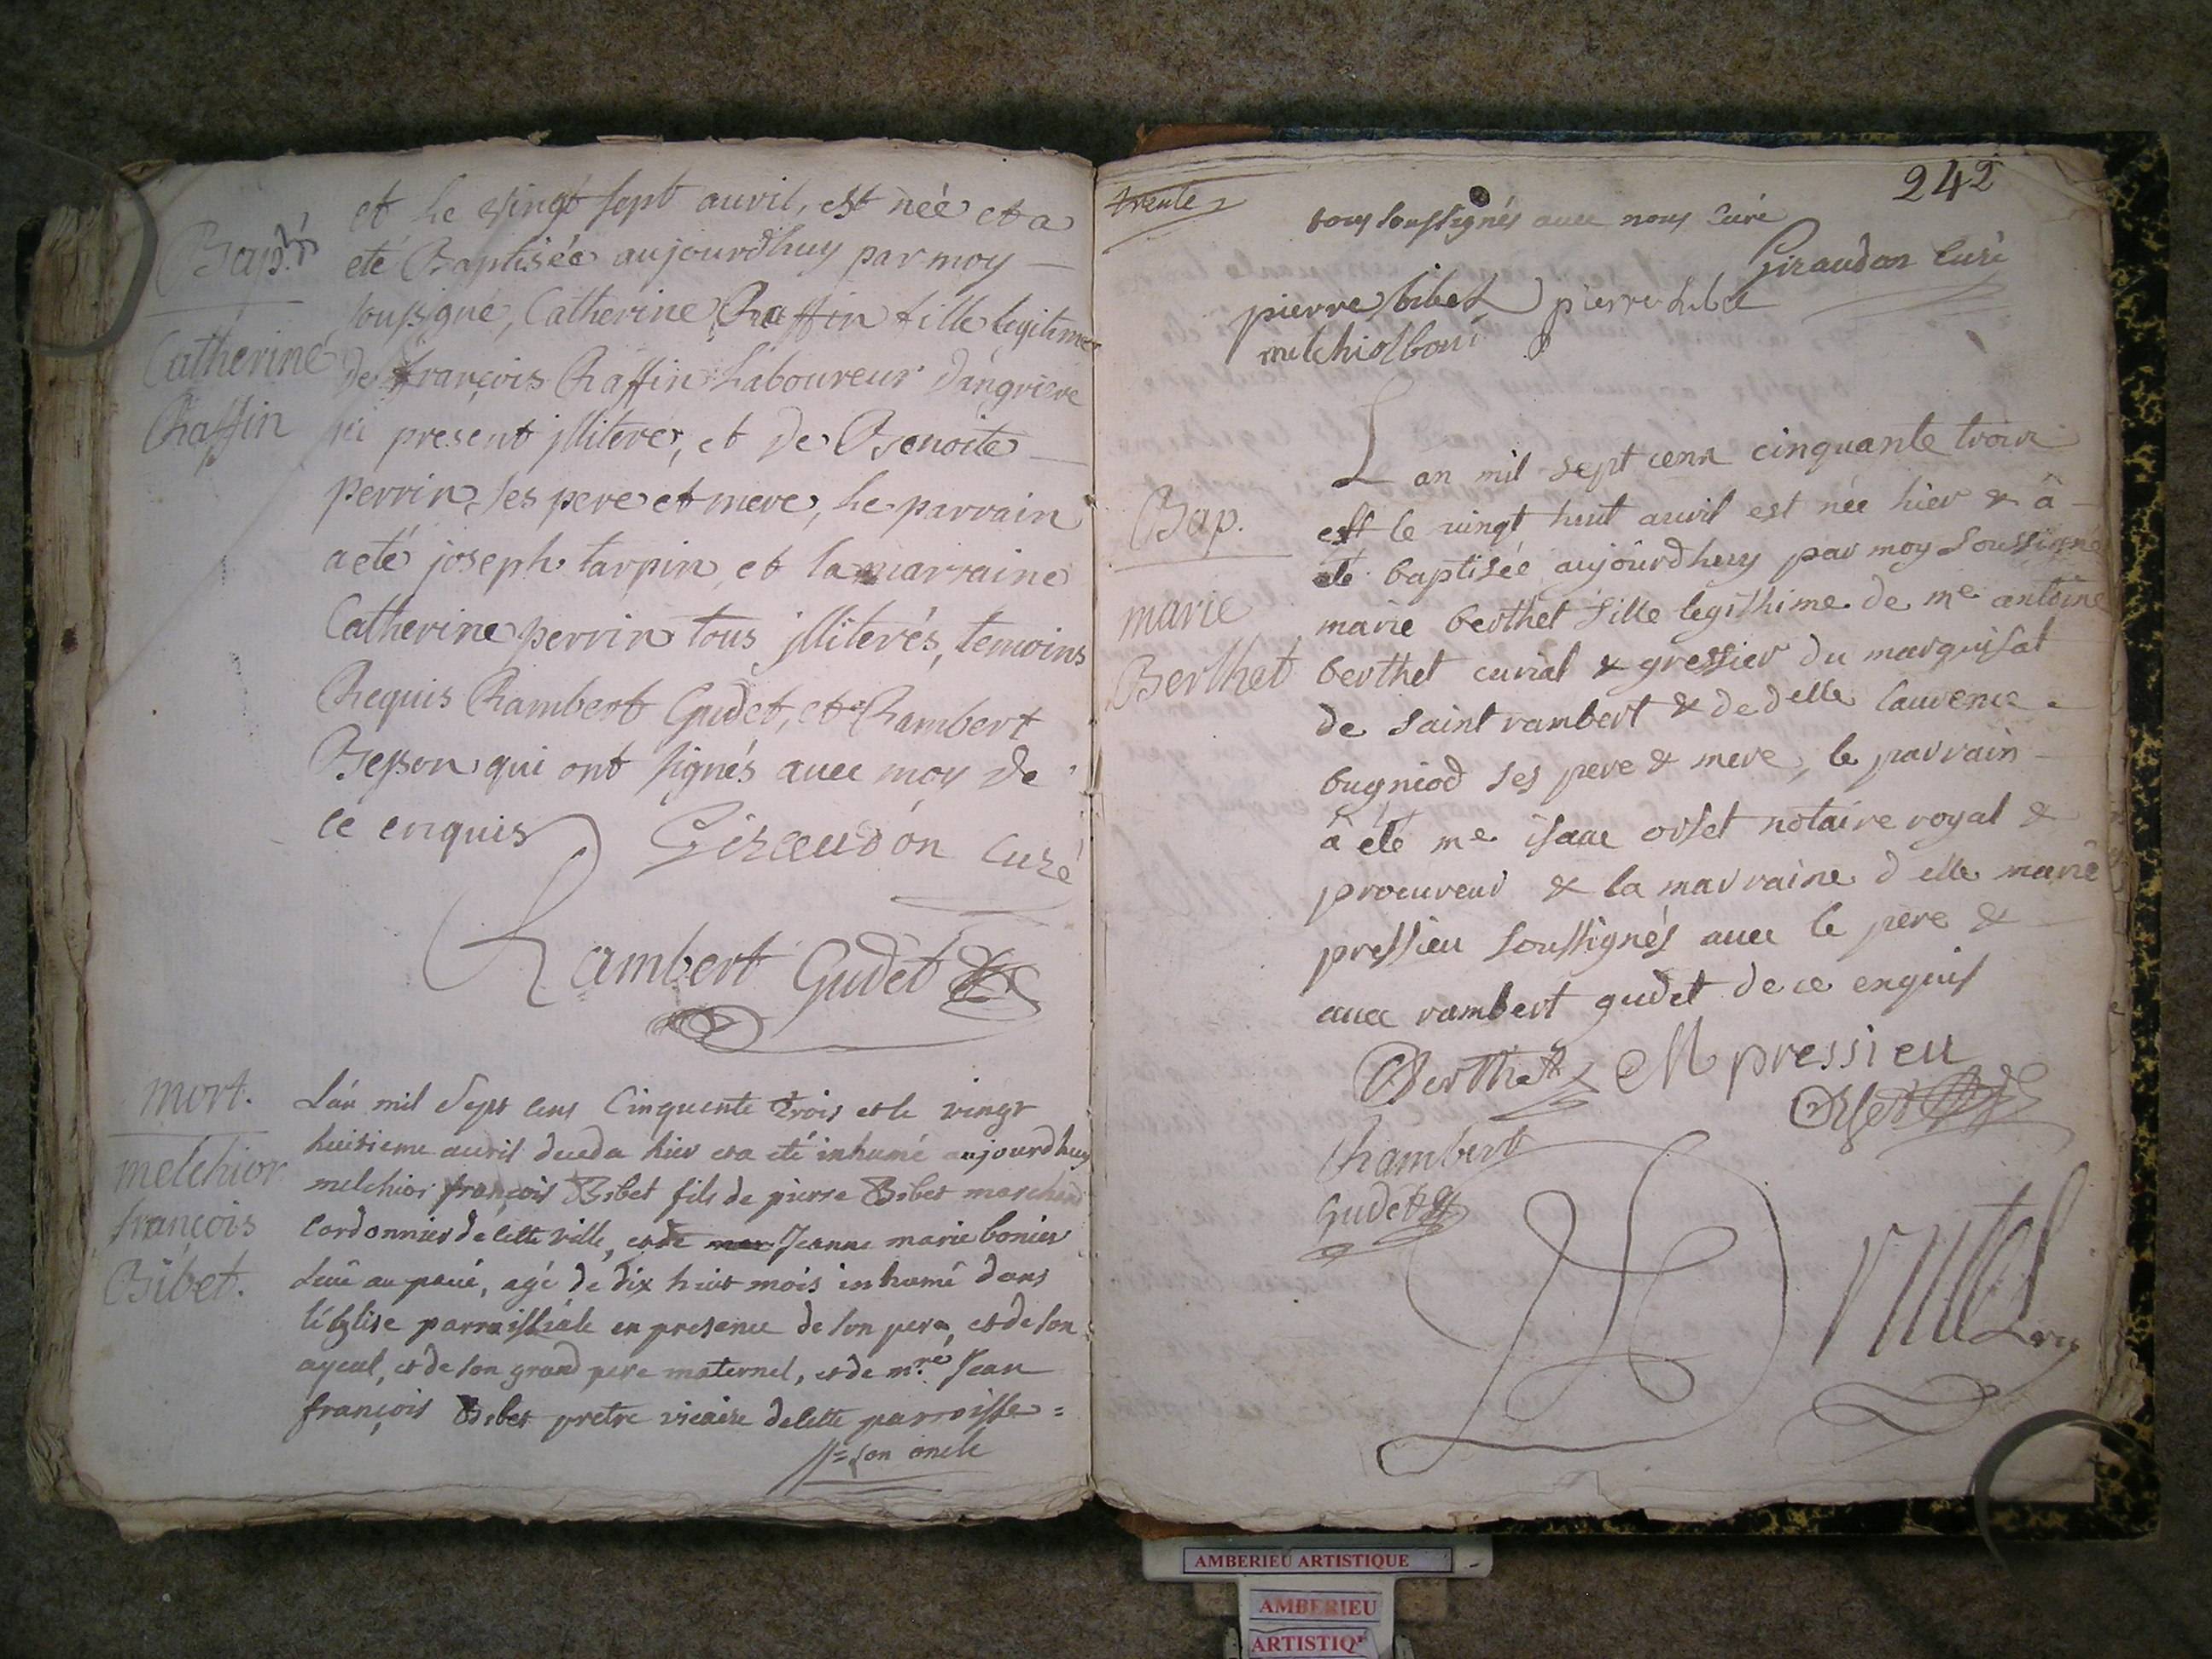 Bap.
Catherine
Raffin
et le vingt sept auvril, est née et a
eté Baptisée aujourdhuy par moy
soussigné, Catherine Raffin fille legitime
de françois Raffin Laboureur d'angriere
ici present jlliteré, et de Benoite
perrin ses pere et mere, le parrain
a eté joseph tarpin et la marraine
Catherine perrin tous jlliterés, temoins
Requis Rambert Gudet, et Rambert
Besson qui ont signés avec moy de
ce enquis Giraudon Curé
Rambert Gudet
mort.
melchior
françois
Bibet.
L'an mil Sept Cens Cinquente trois et le vingt
huitieme auvril deceda hier et a eté inhumé aujourdhuy
melchior françois Bibet fils de pierre Bibet marchand
Cordonnier de cette ville, et de Jeanne marie bonier
agé de dix huit mois inhumé dans
l'église parroissiale en presence de son pere, et de son
ayeul, et de son grand pere maternel, et de mre Jean
françois Bibet pretre vicaire de cette parroisse =
//= son oncle
trente
242
tous soussignés avec nous Curé
Giraudon Curé
pierre bibet pierre bibet
melchiol boni
Bap.
marie
Berthet
L an mil sept cenn cinquante trois
est le vingt huit auvril est née hier & â
été baptisée aujôurdhuy par moy soussigné
marie berthet fille legithime de me antoine
berthet curial & greffier du marquisat
de saint rambert & de delle laurence
bugniod ses pere & mere, le parrain
à été me isaac orset notaire royal &
procureur & la marraine d elle marie
pressieu soussignés avec le pere &
avec rambert gudet de ce enquis
Berthet M pressieu
Orset
Rambert
Gudet
AMBERIEU ARTISTIQUE
AMBERIEU
ARTISTIQ